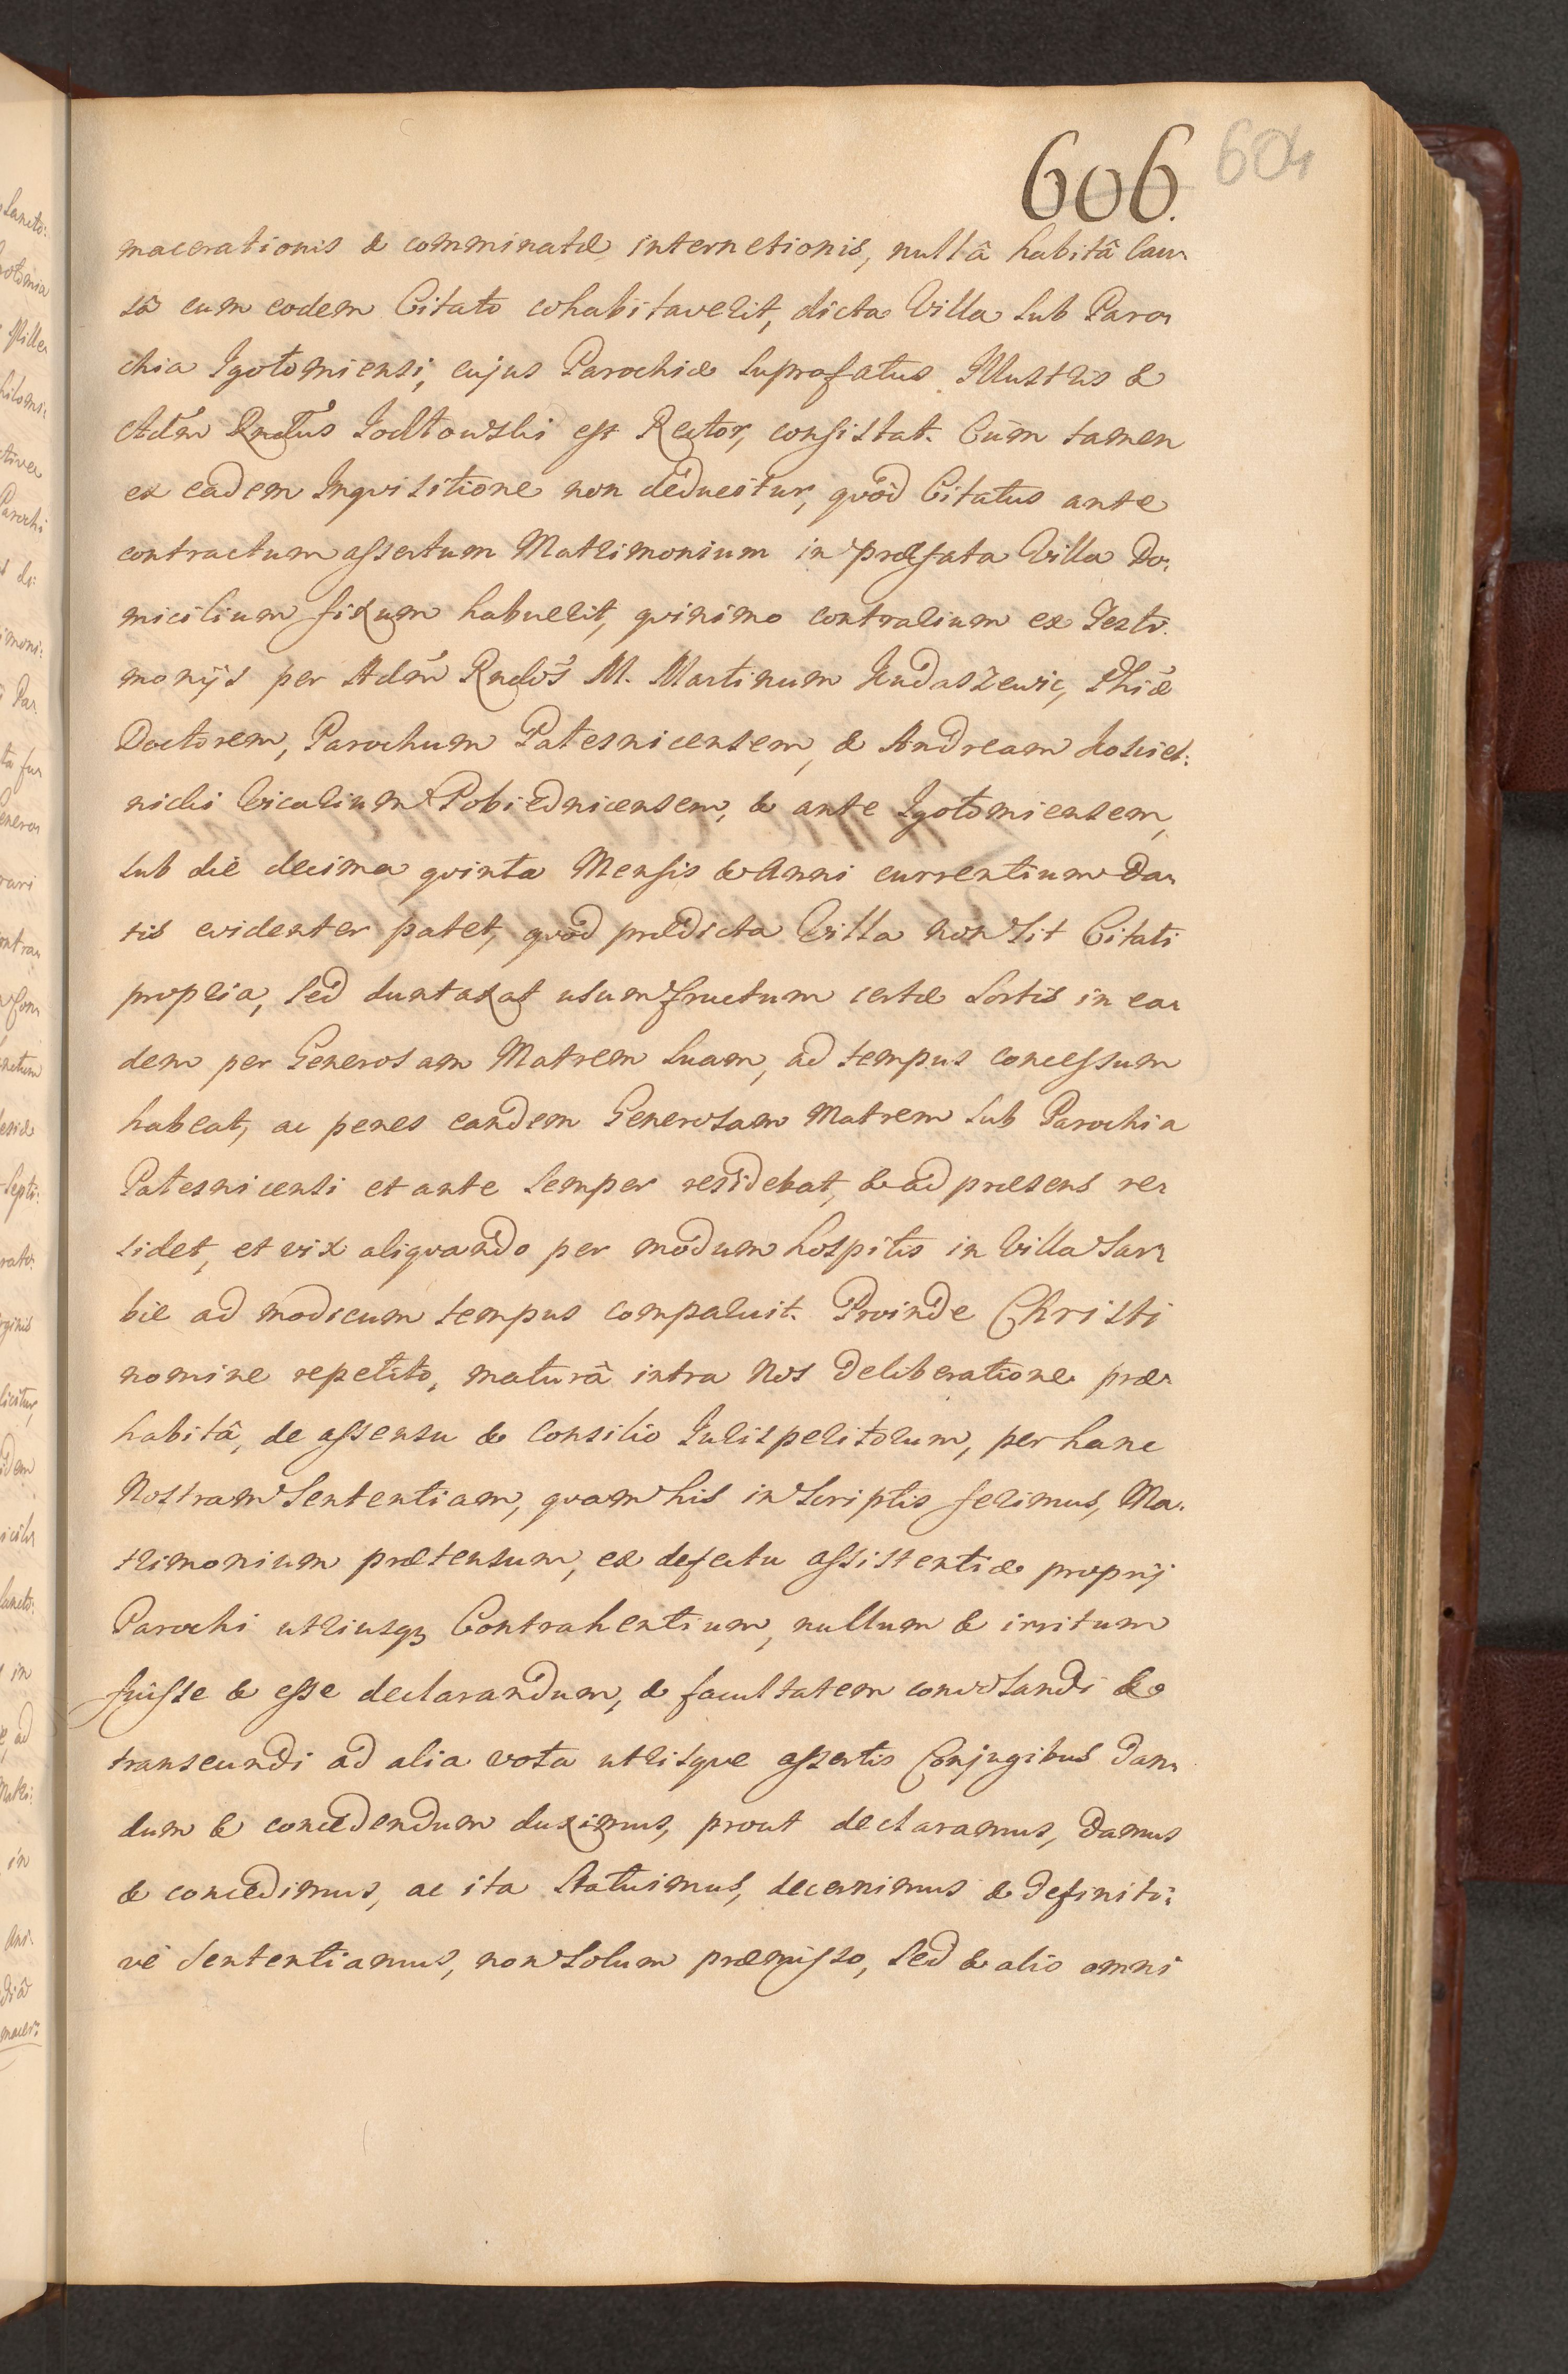 606. 604
macerationis & comminatæ internetionis, nullâ habitâ Cau-
sâ cum eodem Citato cohabitaverit, dicta Villa sub Paro-
chia Igołomiensi, cujus Parochiæ suprafatus Illustris &
Adm̃ Rndus Jodłowski est Rector, consistat. Cùm tamen
ex eadem Inqvisitione non deducitur, qvòd Citatus ante
contractum assertum Matrimonium in præfata Villa Do:
micilium fixum habuerit, qvinimo contrarium ex Testi:
monijs per Adm̃ Rndos M. Martinum Kudaszewic, Phiæ
Doctorem, Parochum Patesnicensem, & Andream Kosciel:
nicki Vicarium Pobiednicensem, & ante Igołomiensem,
sub die decima qvinta Mensis & Anni currentium da-
tis evidenter patet, qvòd prædicta Villa non sit Citati
propria, sed duntaxat usumfructum certæ Sortis in ea-
dem per Generosam Matrem suam, ad tempus concessum
habeat, ac penes eandem Generosam Matrem sub Parochia
Patesnicensi et ante semper residebat, & ad præsens re-
sidet, et vix aliqvando per modum hospitis in Villa Sar-
bie ad modicum tempus comparuit. Proinde Christi
nomine repetito, maturâ intra Nos deliberatione præ-
habitâ, de assensu & Consilio Jurisperitorum, per hanc
Nostram Sententiam, qvam his in Scriptis ferimus, Ma-
trimonium prætensum, ex defectu assistentiæ proprij
Parochi utriusqz Contrahentium, nullum & irritum
fuisse & esse declarandum, & facultatem convolandi &
transeundi ad alia vota utrisque assertis Conjugibus dan-
dum & concedendum duximus, prout declaramus, damus
& concedimus, ac ita Statuimus, decernimus & definiti:
vè Sententiamus, non solum præmisso, sed & alio omni